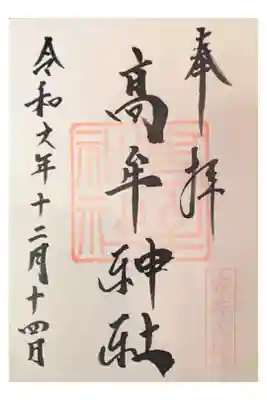 奉拝
高牟神社
令和六年十二月十四日